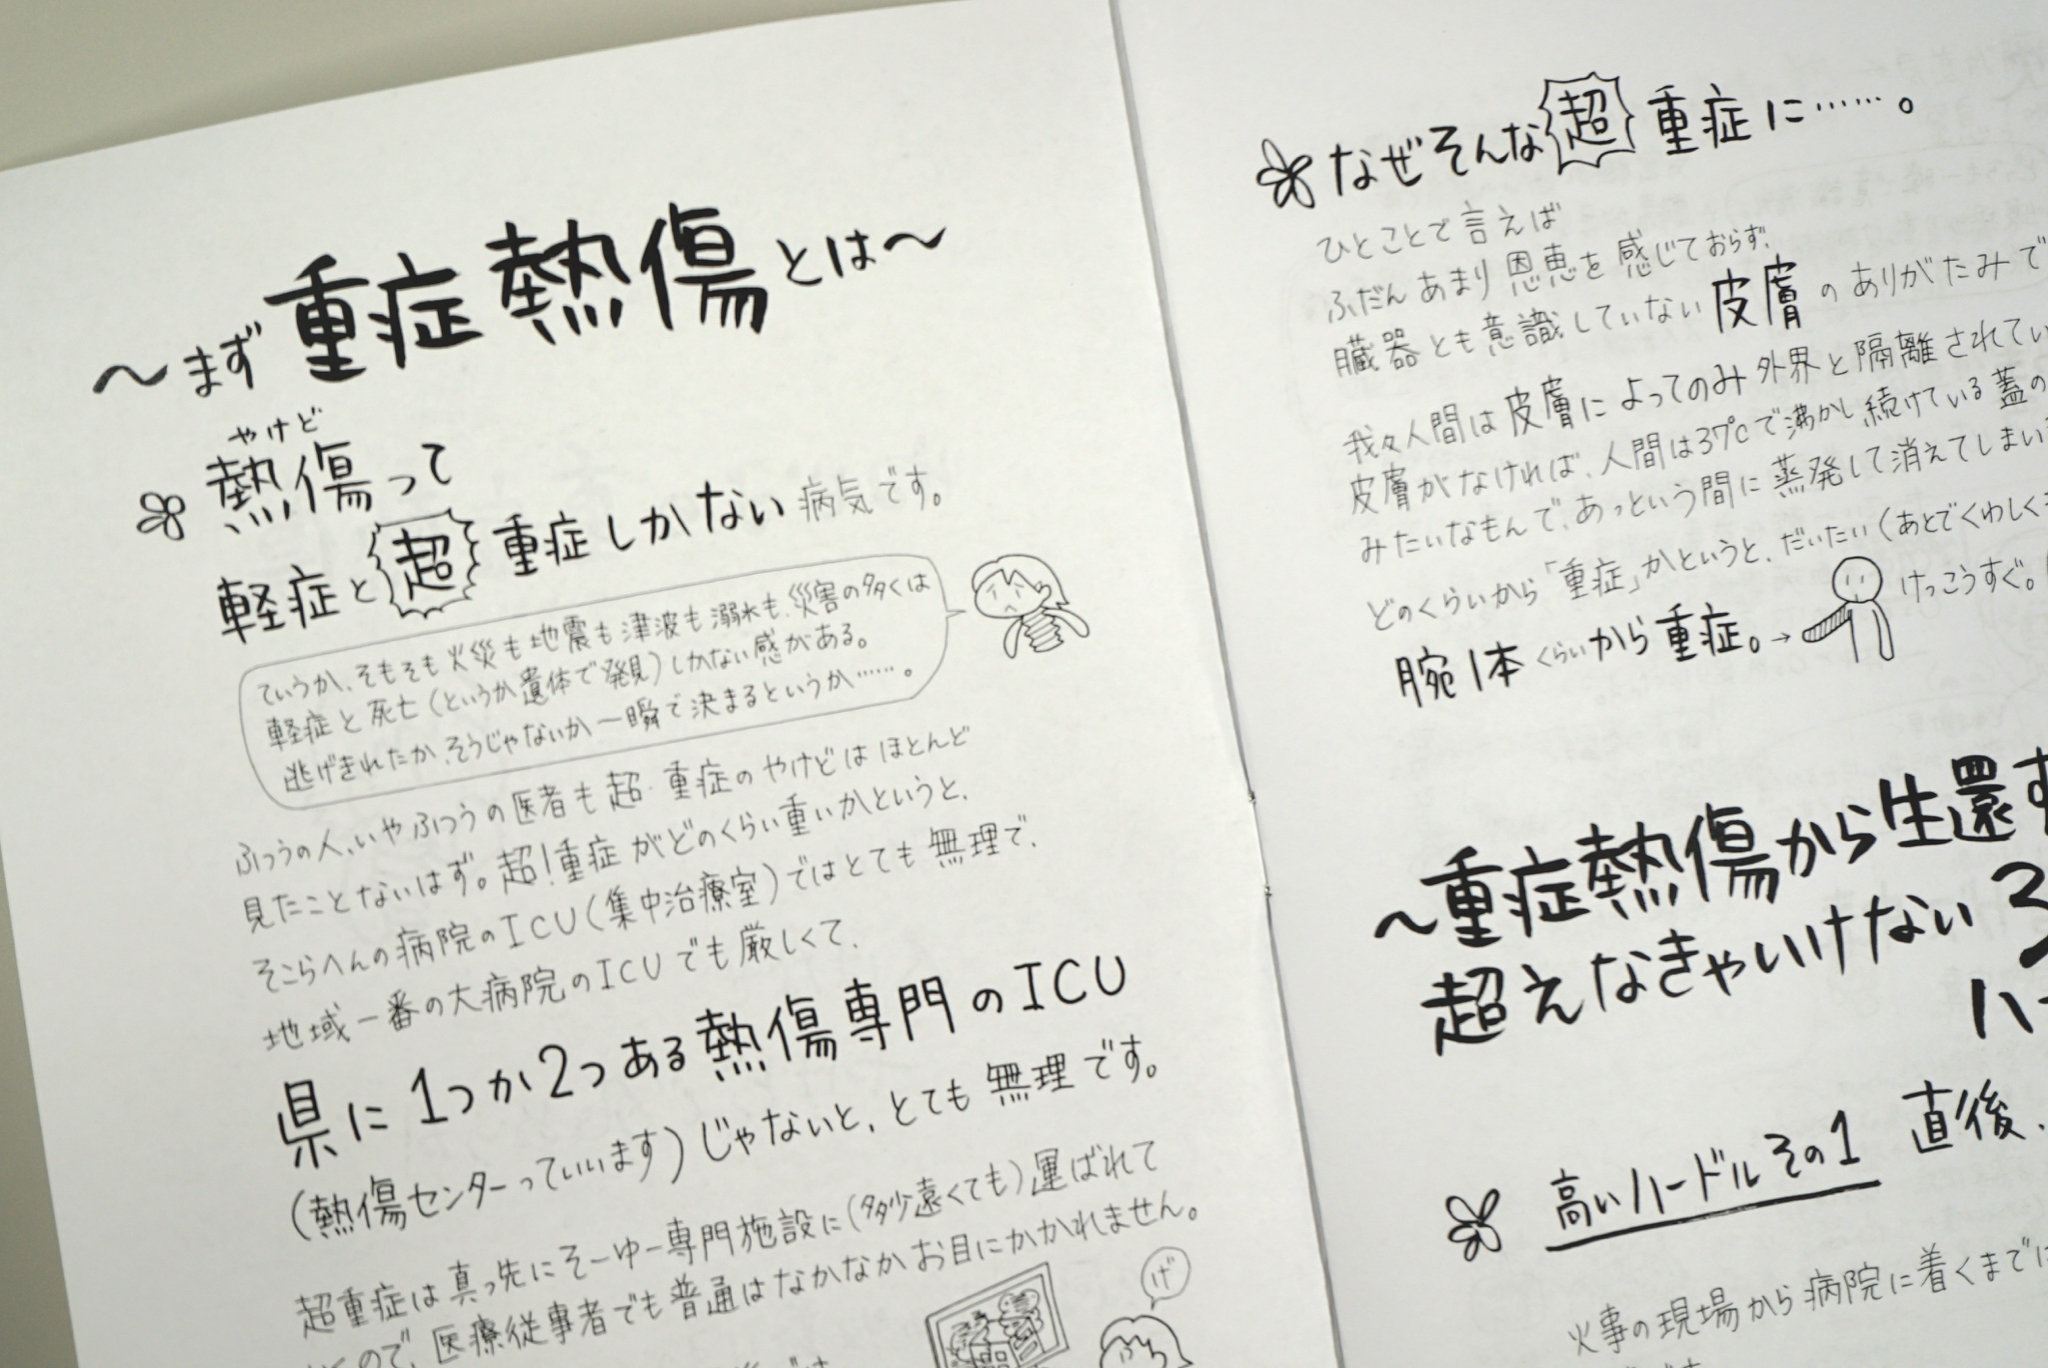 〜まず重症熱傷とは〜
やけど
熱傷って
軽症と超重症しかない病気です。
ていうか、そもそも火災も地震も津波も溺水も、災害の多くは
軽症と死亡(というか遺体で発見)しかない感がある。
逃げきれたか、そうじゃないか一瞬で決まるというか……。
ふつうの人、いやふつうの医者も超・重症のやけどはほとんど
見たことないはず。超!重症がどのくらい重いかというと、
そこらへんの病院のICU(集中治療室)ではとても無理で、
地域一番の大病院のICUでも厳しくて、
県に1つか2つある熱傷専門のICU
(熱傷センターっていいます)じゃないと、とても無理です。
超重症は真っ先にそーゆー専門施設に(多少遠くても)運ばれて
ので、医療従事者でも普通はなかなかお目にかかれません。
げ
なぜそんな超重症に……。
ひとことで言えば
ふだんあまり恩恵を感じておらず、
臓器とも意識していない皮膚のありがたみで
我々人間は皮膚によってのみ外界と隔離されてい
皮膚がなければ、人間は37℃で沸かし続けている蓋の
みたいなもんで、あっという間に蒸発して消えてしまい
どのくらいから「重症」かというと、だいたい(あとでくわしく
腕1本くらいから重症。→
けっこうすぐ。
〜重症熱傷から生還す
超えなきゃいけない3
ハー
高いハードルその1 直後、
火事の現場から病院に着くまでに